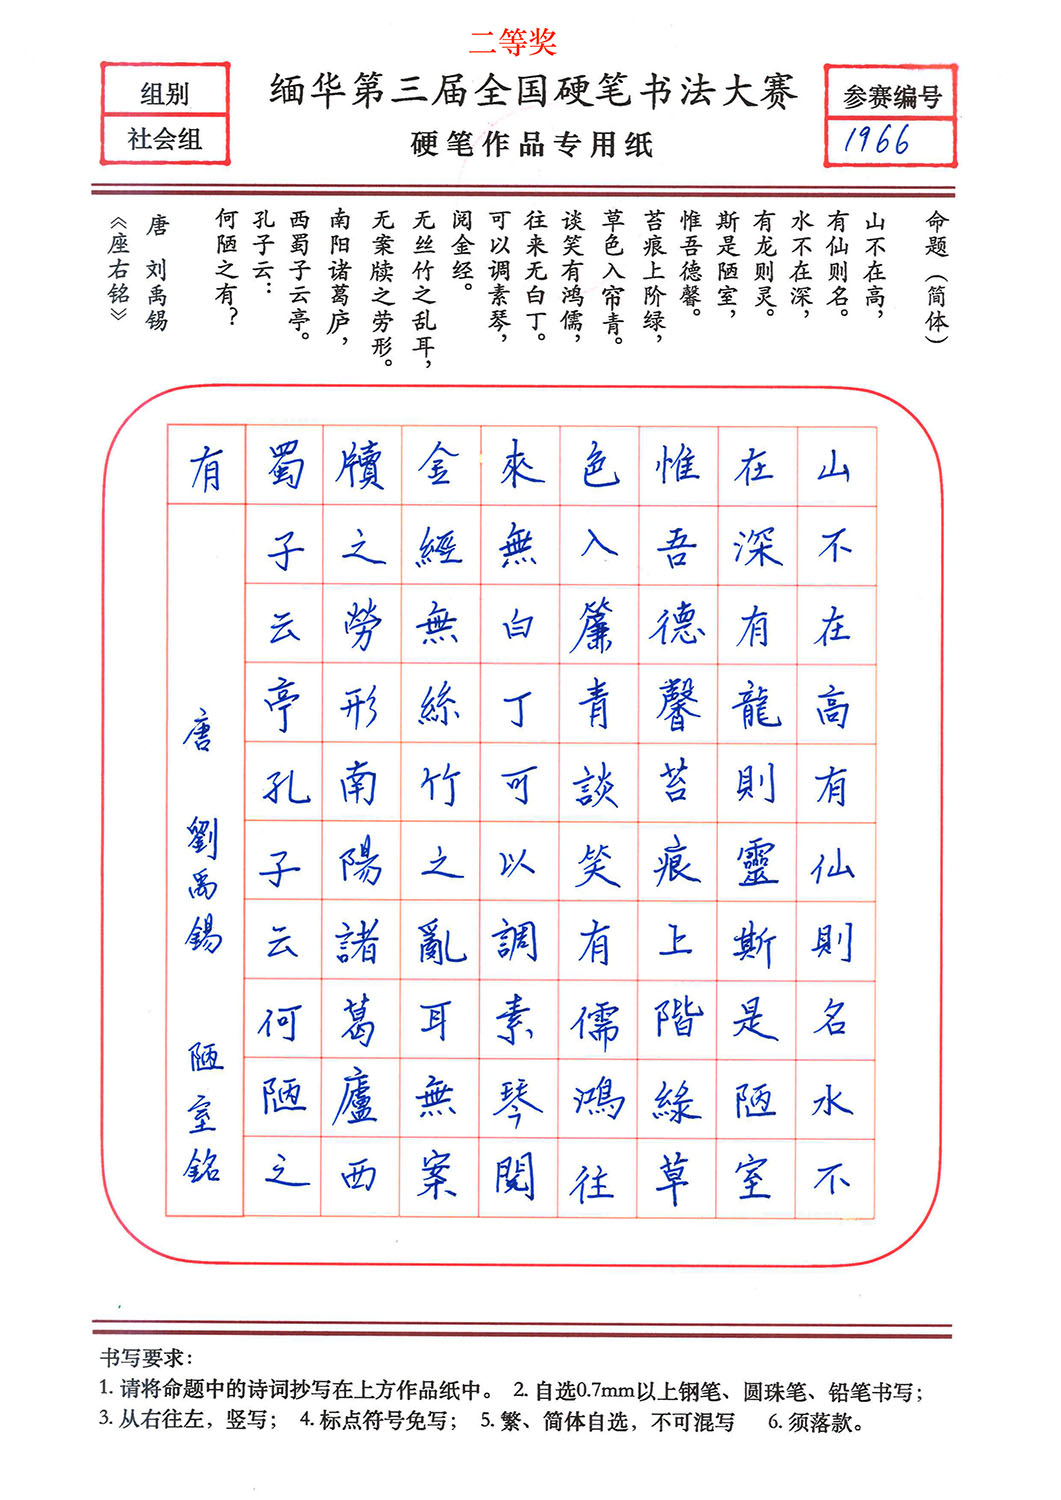 二等奖
组别
社会组
缅华第三届全国硬笔书法大赛
硬笔作品专用纸
参赛编号
1966
命题（简体）
山不在高，
有仙则名。
水不在深，
有龙则灵。
斯是陋室，
惟吾德馨。
苔痕上阶绿，
草色入帘青。
谈笑有鸿儒，
往来无白丁。
可以调素琴，
阅金经。
无丝竹之乱耳，
无案牍之劳形。
南阳诸葛庐，
西蜀子云亭。
孔子云：
何陋之有？
唐 刘禹锡
《座右铭》
山不在高有仙則名水不
在深有龍則靈斯是陋室
惟吾德馨苔痕上階綠草
色入簾青談笑有儒鴻往
來無白丁可以調素琴閱
金經無絲竹之亂耳無案
牘之勞形南陽諸葛廬西
蜀子云亭孔子云何陋之
有
唐 劉禹錫 陋室銘
书写要求：
1. 请将命题中的诗词抄写在上方作品纸中。 2. 自选0.7mm以上钢笔、圆珠笔、铅笔书写；
3. 从右往左，竖写； 4. 标点符号免写； 5. 繁、简体自选，不可混写 6. 须落款。